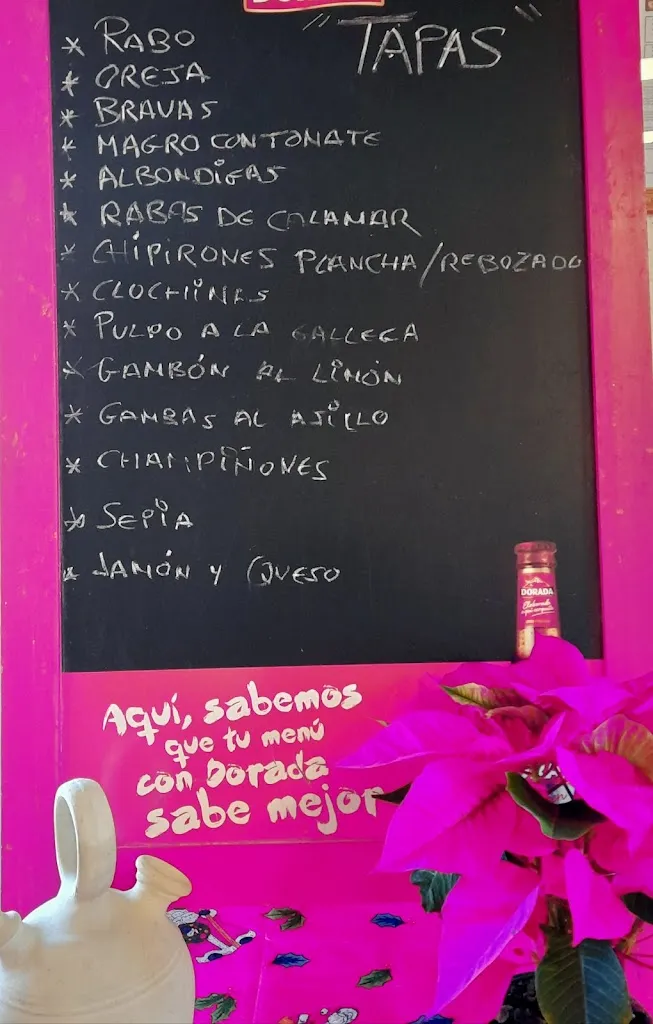 "TAPAS"
* RABO
* OREJA
* BRAVAS
* MAGRO CON TOMATE
* ALBONDIGAS
* RABAS DE CALAMAR
* CHIPIRONES PLANCHA/REBOZADO
* CLOCHINAS
* PULPO A LA GALLEGA
* GAMBÓN AL LIMÓN
* GAMBAS AL AJILLO
* CHAMPIÑONES
* SEPIA
* JAMÓN Y QUESO
DORADA
Aquí, sabemos
que tu menú
con Dorada
sabe mejor